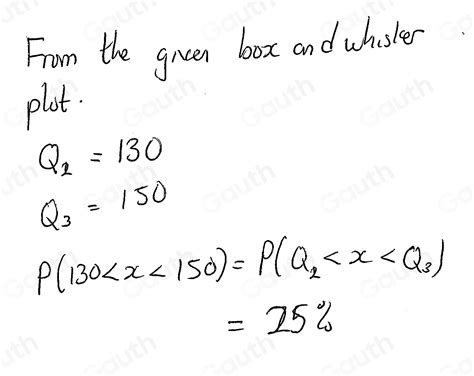 From the given box and whisker
plot.
Q₂ = 130
Q₃ = 150
P(130<x<150) = P(Q₂<x<Q₃)
= 25%